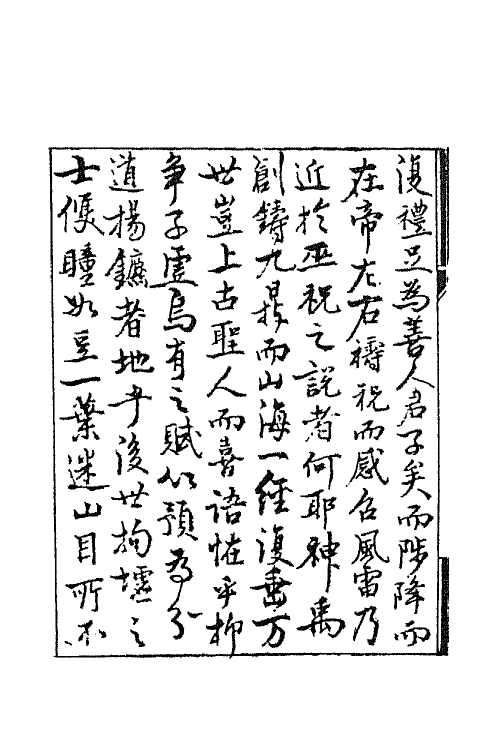 復禮足為善人君子矣而陟降而
在帝左右禱祝而感召風雷乃
近於巫祝之說者何耶神禹
創鑄九鼎而山海一經復垂万
世豈上古聖人而喜語怪乎抑
争子虛烏有之賦心預為分
道揚鑣者地乎後世拘墟之
士便瞳如豆一葉迷山目所不